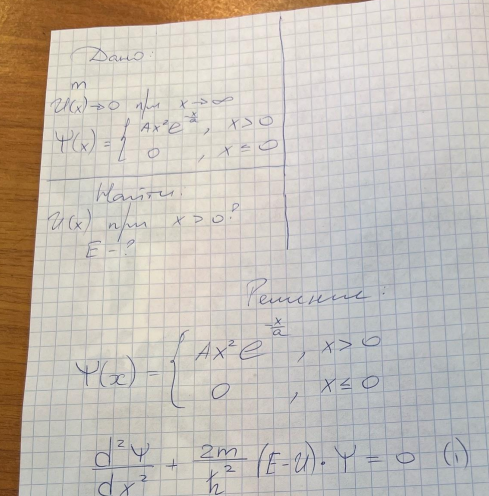 Дано:
m
U(x)→0 при x→∞
Ψ(x) = { Ax²e^{-x/a}, x>0
0, x≤0
Найти:
U(x) при x>0?
E - ?
Решение:
Ψ(x) = { Ax²e^{-x/a}, x>0
0, x≤0
d²Ψ/dx² + 2m/ħ² (E-U)·Ψ = 0 (1)